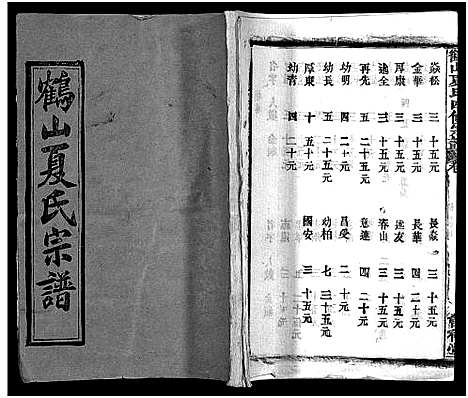 鶴山夏氏宗譜
焱松 三 十五元
金華 三 十五元
厚康 三 十五元
達全 三 十五元
再先 五 二十五元
幼明 四 二十元
幼長 二 十元
厚東 十 五十元
幼青 四 二十元
長焱 三 十五元
長華 四 二十元
述友 三 十五元
春山 三 十五元
意達 四 二十元
昌受 二 十元
幼柏 七 三十五元
國安 三 十五元